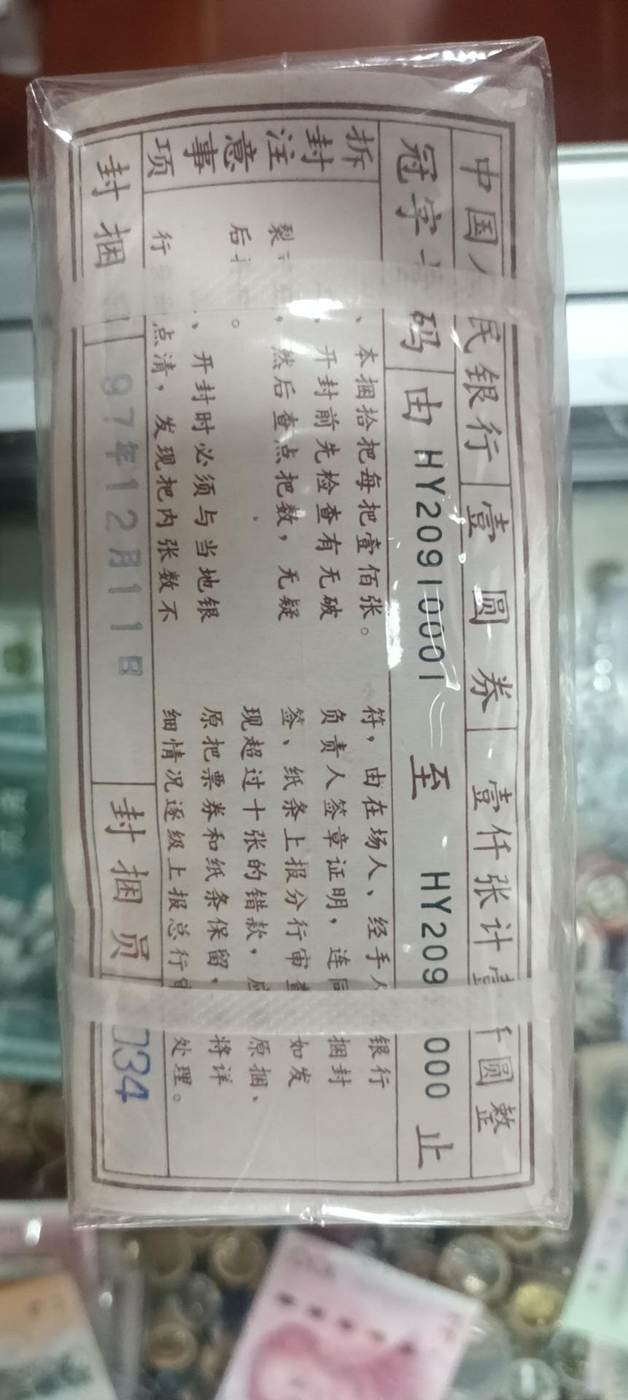 中国人民银行 壹圆券 壹仟张计壹仟圆整
冠字号码 由 HY20910001 至 HY209 000 止
拆封注意事项
、本捆拾把每把壹佰张。
、开封前先检查有无破
裂 ，然后查点把数，无疑
后 。
、开封时必须与当地银
行 点清，发现把内张数不
符，由在场人、经手人 银行
负责人签章证明，连同 捆封
签、纸条上报分行审查 如发
现超过十张的错款，应 原捆、
原把票券和纸条保留， 将详
细情况逐级上报总行 处理。
封捆 97年12月11日 封捆员 034